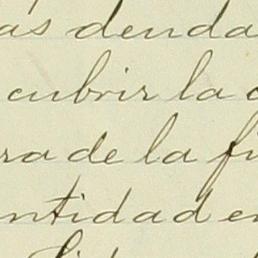 as denda
cubrir la
ra de la fi
ntidad en